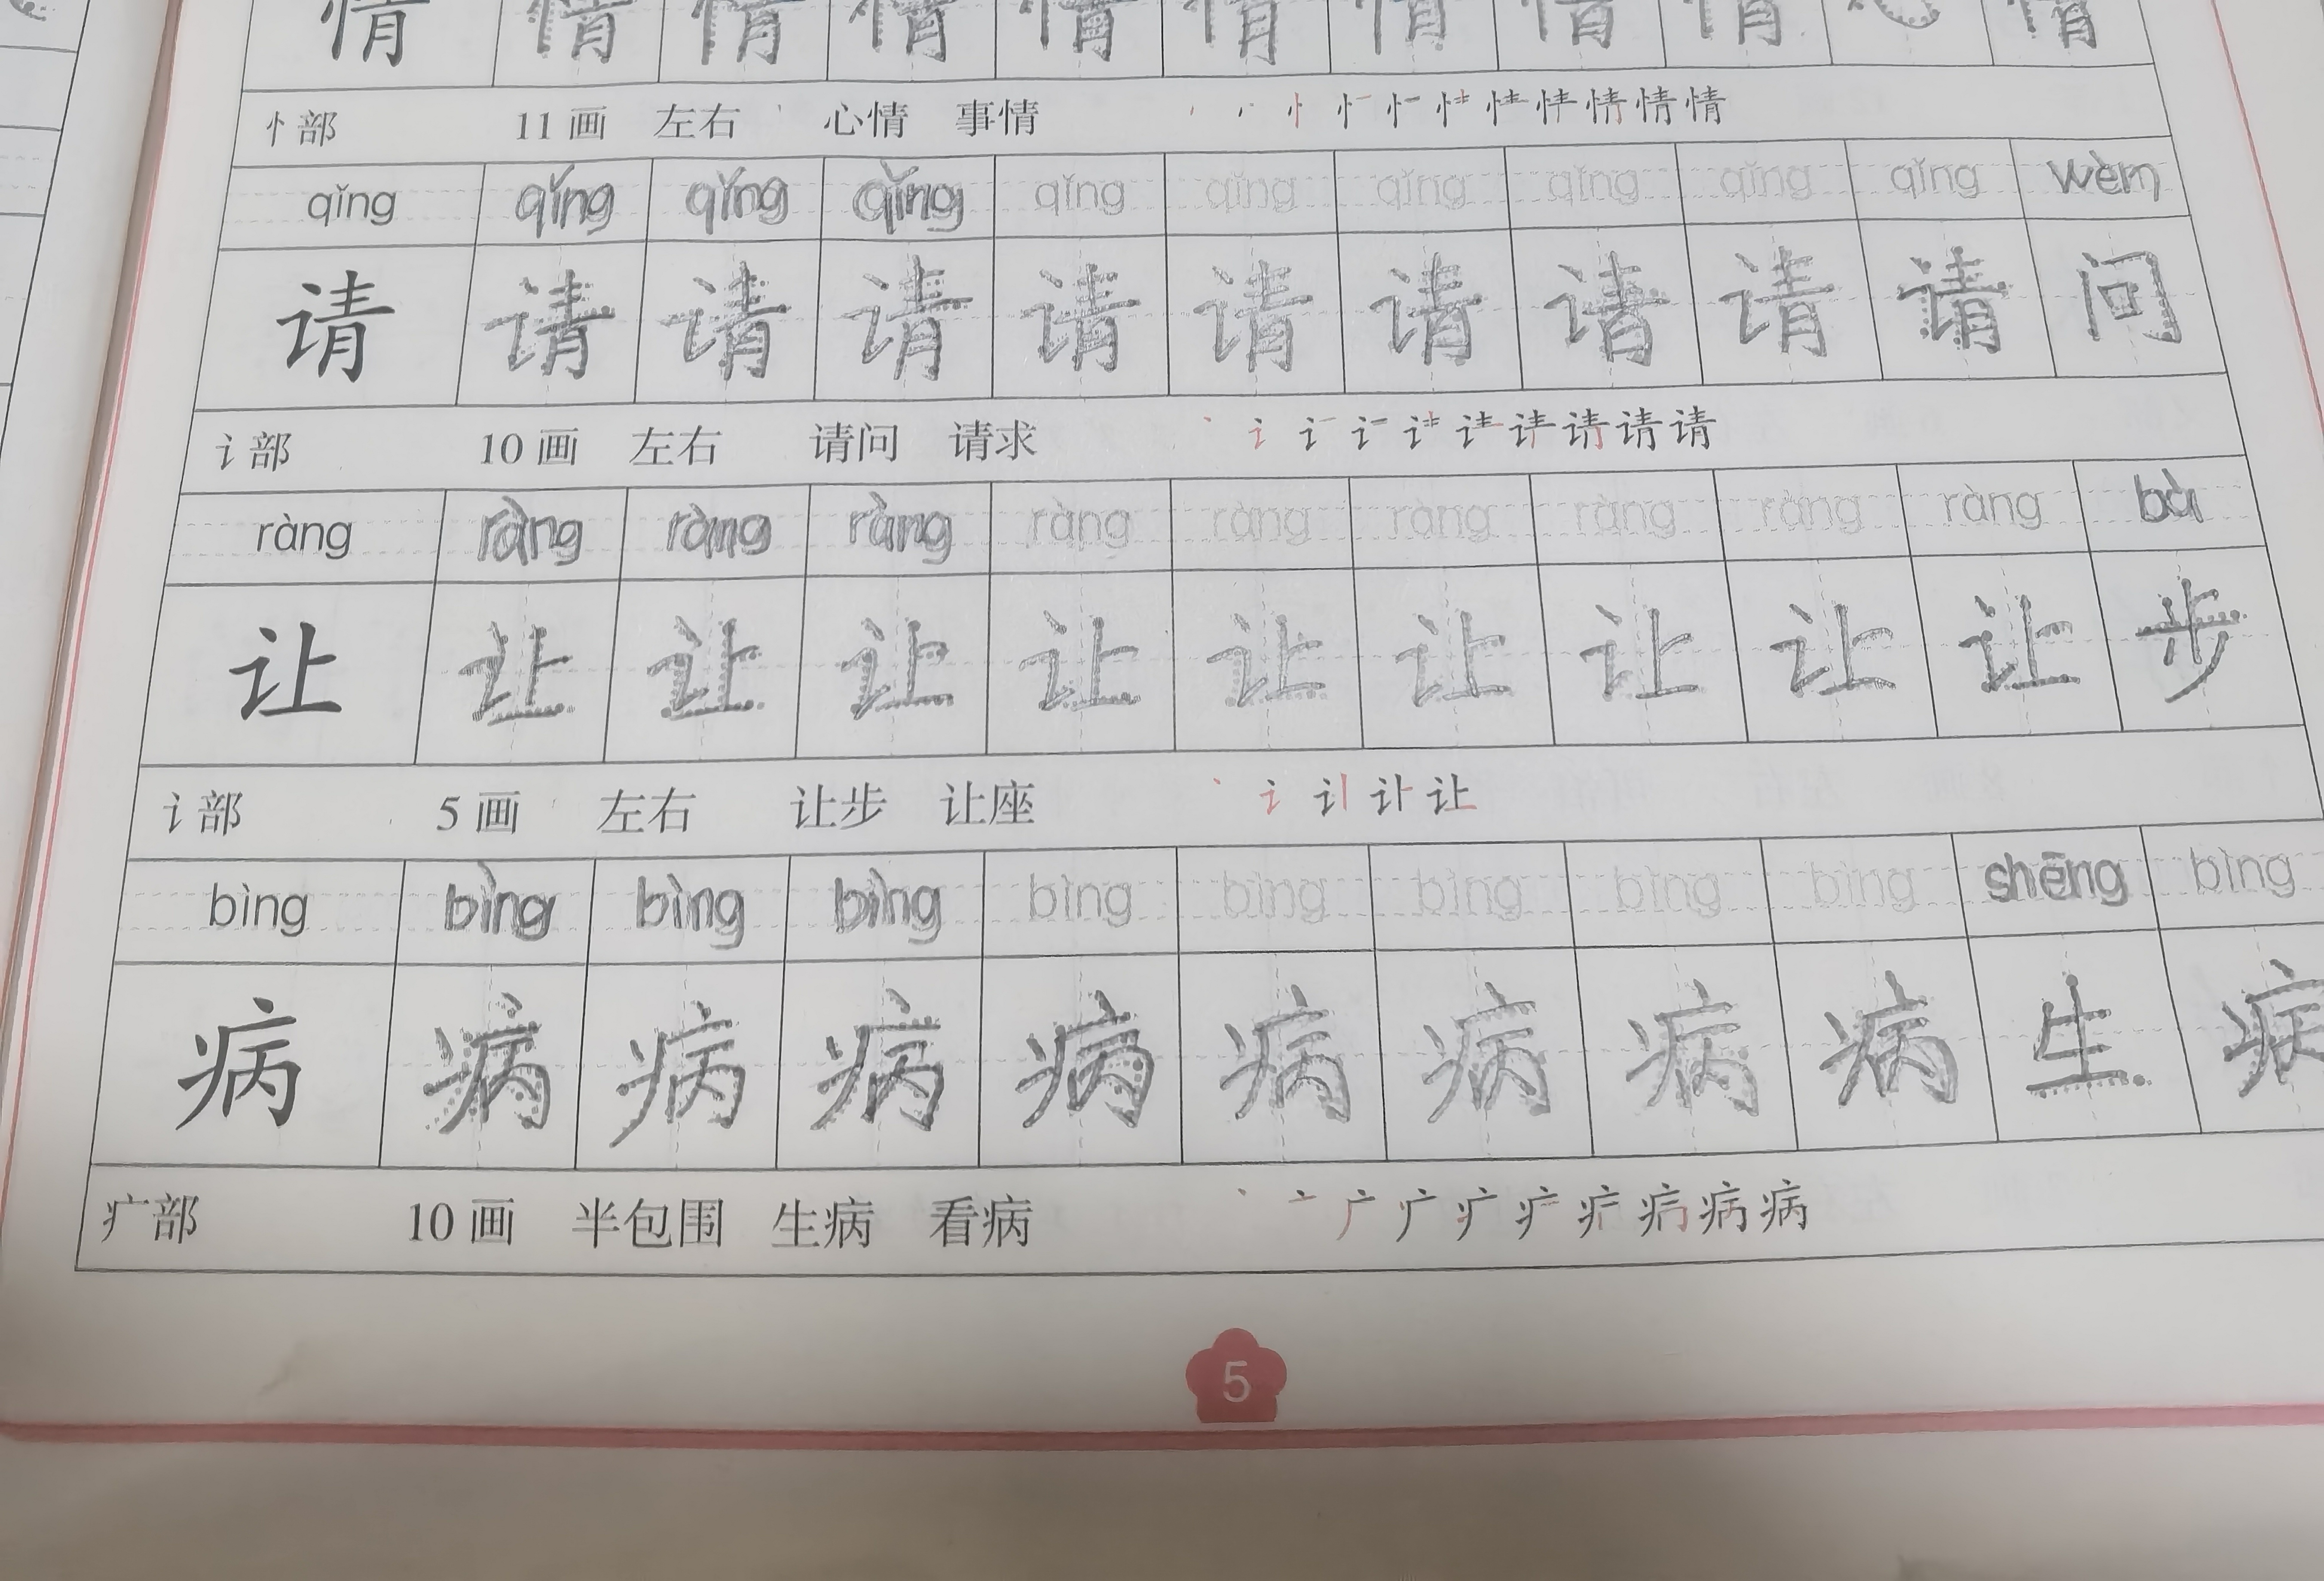 情 情 情 情 情 情 情 情 情 情
忄部 11 画 左右 心情 事情
qǐng qǐng qǐng qǐng qǐng qǐng qǐng qǐng qǐng qǐng wèn
请 请 请 请 请 请 请 请 请 请 问
讠部 10 画 左右 请问 请求 请 请
ràng ràng ràng ràng ràng ràng ràng ràng ràng ràng
让 让 让 让 让 让 让 让 让 让 步
讠部 5 画 左右 让步 让座 丶 讠 让
bìng bìng bìng bìng bìng bìng bìng bìng bìng shēng bìng
病 病 病 病 病 病 病 病 病 生 病
疒部 10 画 半包围 生病 看病 丶 亠 广 疒 病
5